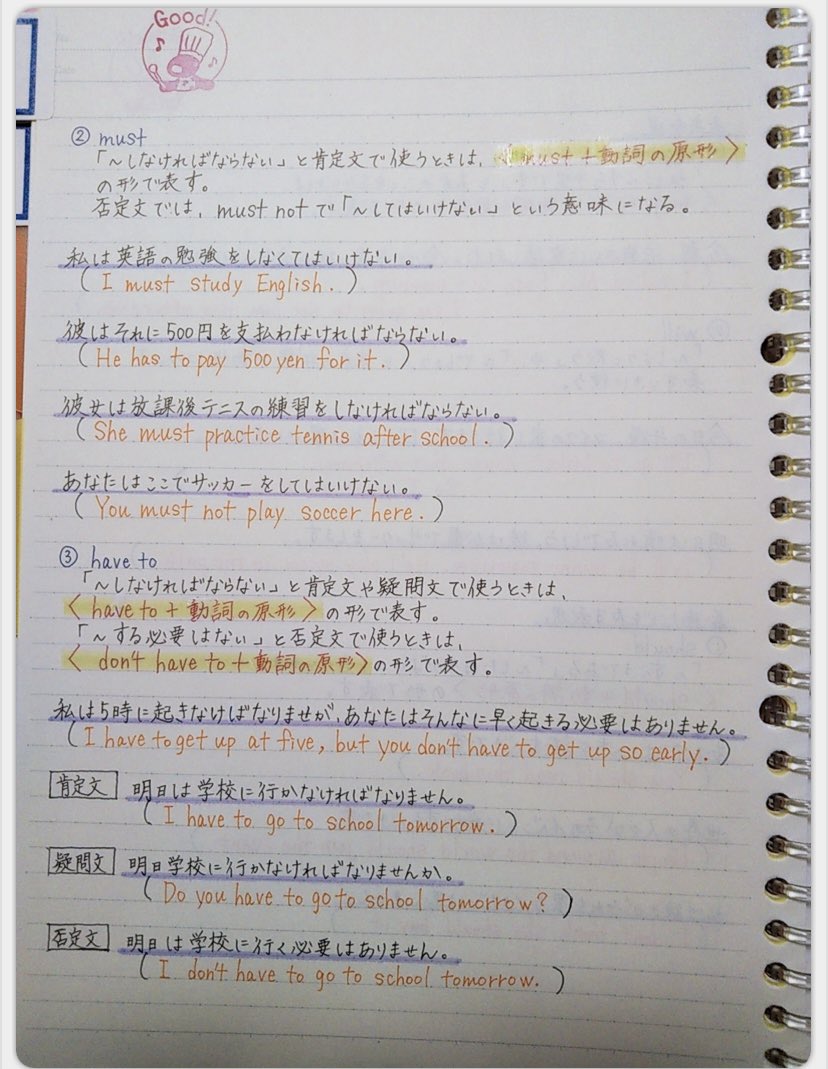 Good!
② must
「～しなければならない」と肯定文で使うときは、〈must+動詞の原形〉
の形で表す。
否定文では、must notで「～してはいけない」という意味になる。
私は英語の勉強をしなくてはいけない。
( I must study English. )
彼はそれに500円を支払わなければならない。
( He has to pay 500 yen for it. )
彼女は放課後テニスの練習をしなければならない。
( She must practice tennis after school. )
あなたはここでサッカーをしてはいけない。
( You must not play soccer here. )
③ have to
「～しなければならない」と肯定文や疑問文で使うときは、
〈 have to + 動詞の原形 〉の形で表す。
「～する必要はない」と否定文で使うときは、
〈 don't have to + 動詞の原形〉の形で表す。
私は5時に起きなけばなりませが、あなたはそんなに早く起きる必要はありません。
( I have to get up at five, but you don't have to get up so early. )
肯定文 明日は学校に行かなければなりません。
( I have to go to school tomorrow. )
疑問文 明日学校に行かなければなりませんか。
( Do you have to go to school tomorrow? )
否定文 明日は学校に行く必要はありません。
( I don't have to go to school tomorrow. )